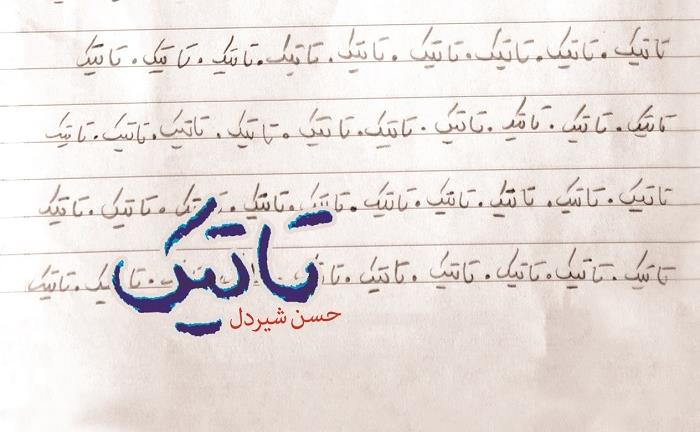 تاتیک . تاتیک . تاتیک . تاتیک . تاتیک . تاتیک . تاتیک . تاتیک . تاتیک
تاتیک . تاتیک . تاتیک . تاتیک . تاتیک . تاتیک . تاتیک . تاتیک . تاتیک . تاتیک
تاتیک . تاتیک . تاتیک . تاتیک . تاتیک . تاتیک . تاتیک . تاتیک . تاتیک . تاتیک
تاتیک . تاتیک . تاتیک . تاتیک . تاتیک . تاتیک
تاتیک
حسن شیردل